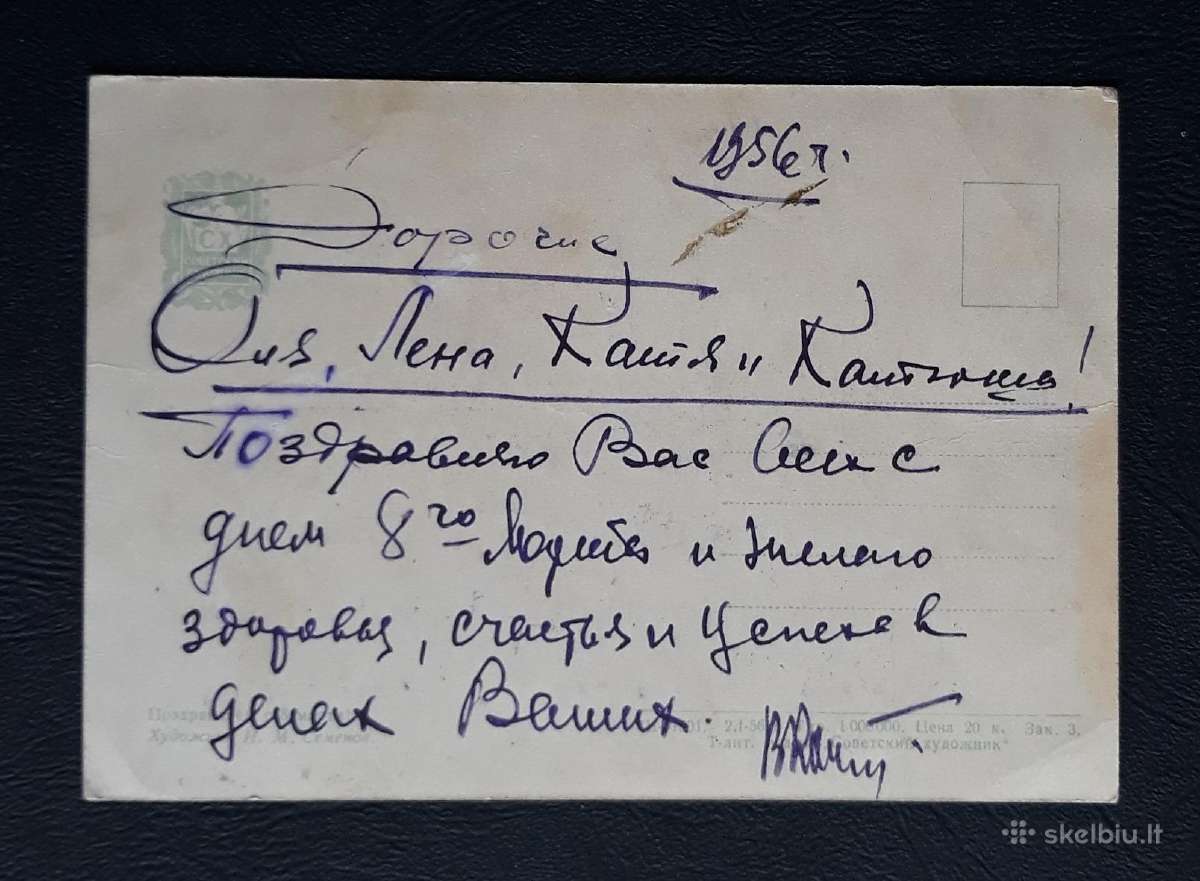 1956 г.
Дорогие
Оля, Лена, Катя и Катюша!
Поздравляю Вас всех с
днем 8го Марта и желаю
здоровья, счастья и успехов в
делах Ваших.
Художник И. М. Семенов
1 000 000. Цена 20 к. Зак. 3.
"Советский художник"
skelbiu.lt